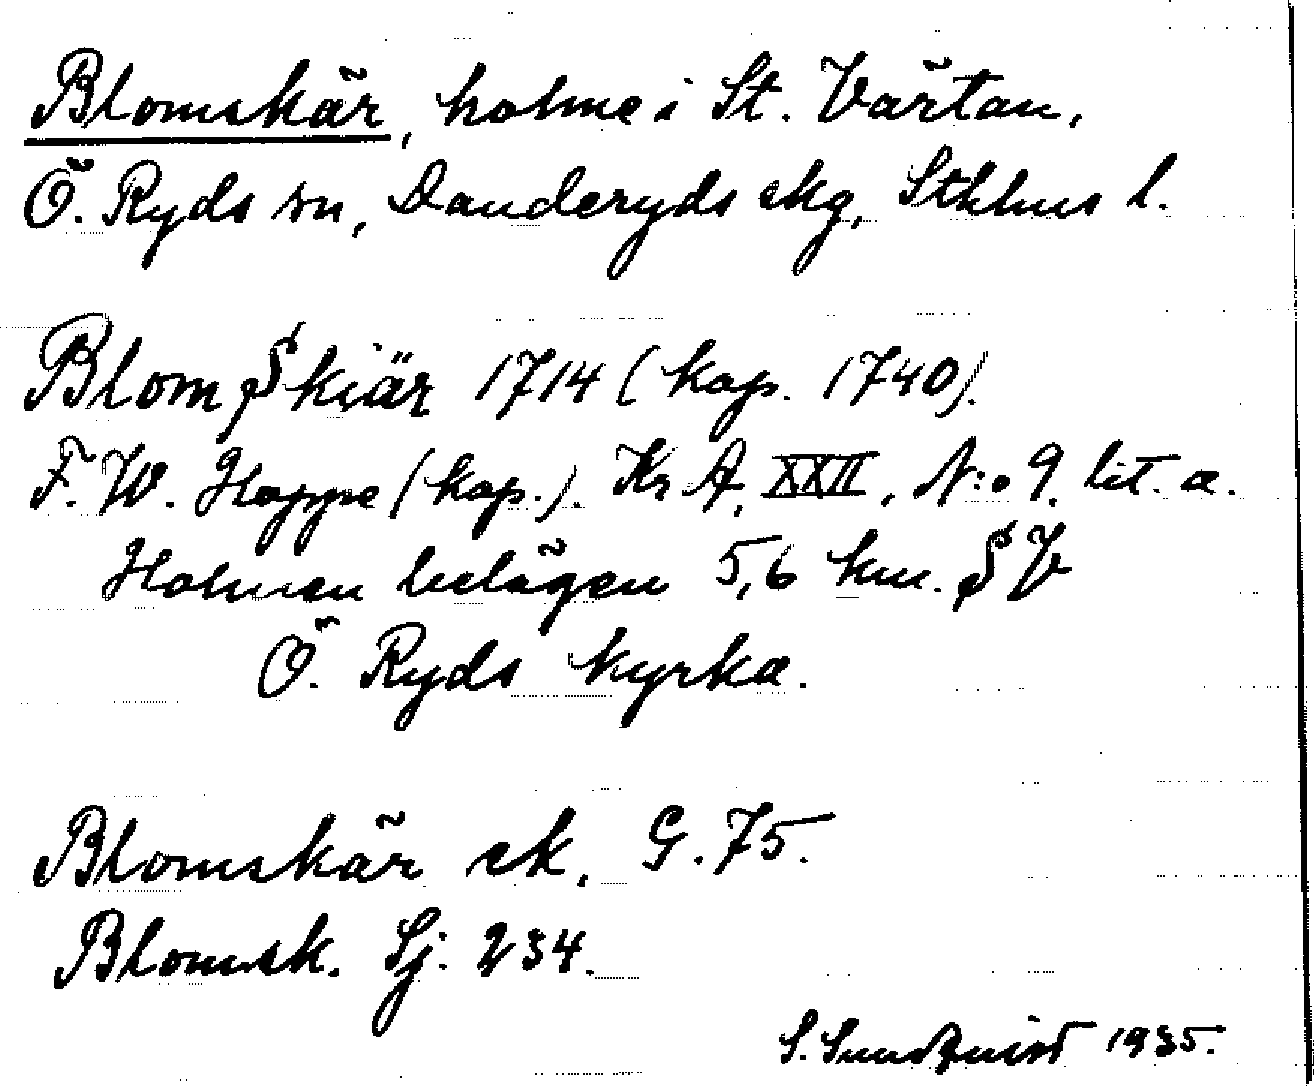 Blomskär, holme i St. Värtan,
Ö. Ryds sn, Danderyds skg, Sthlms l.
Blom Skiär 1714 (kop. 1740).
F. W. Hoppe (kop.). Kr A, XXII, N:o 9. lit. a.
Holmen belägen 5,6 km. SV
Ö. Ryds kyrka.
Blomskär sk, G. 75.
Blomsk. Sj. 234.
S. Sundquist 1935.